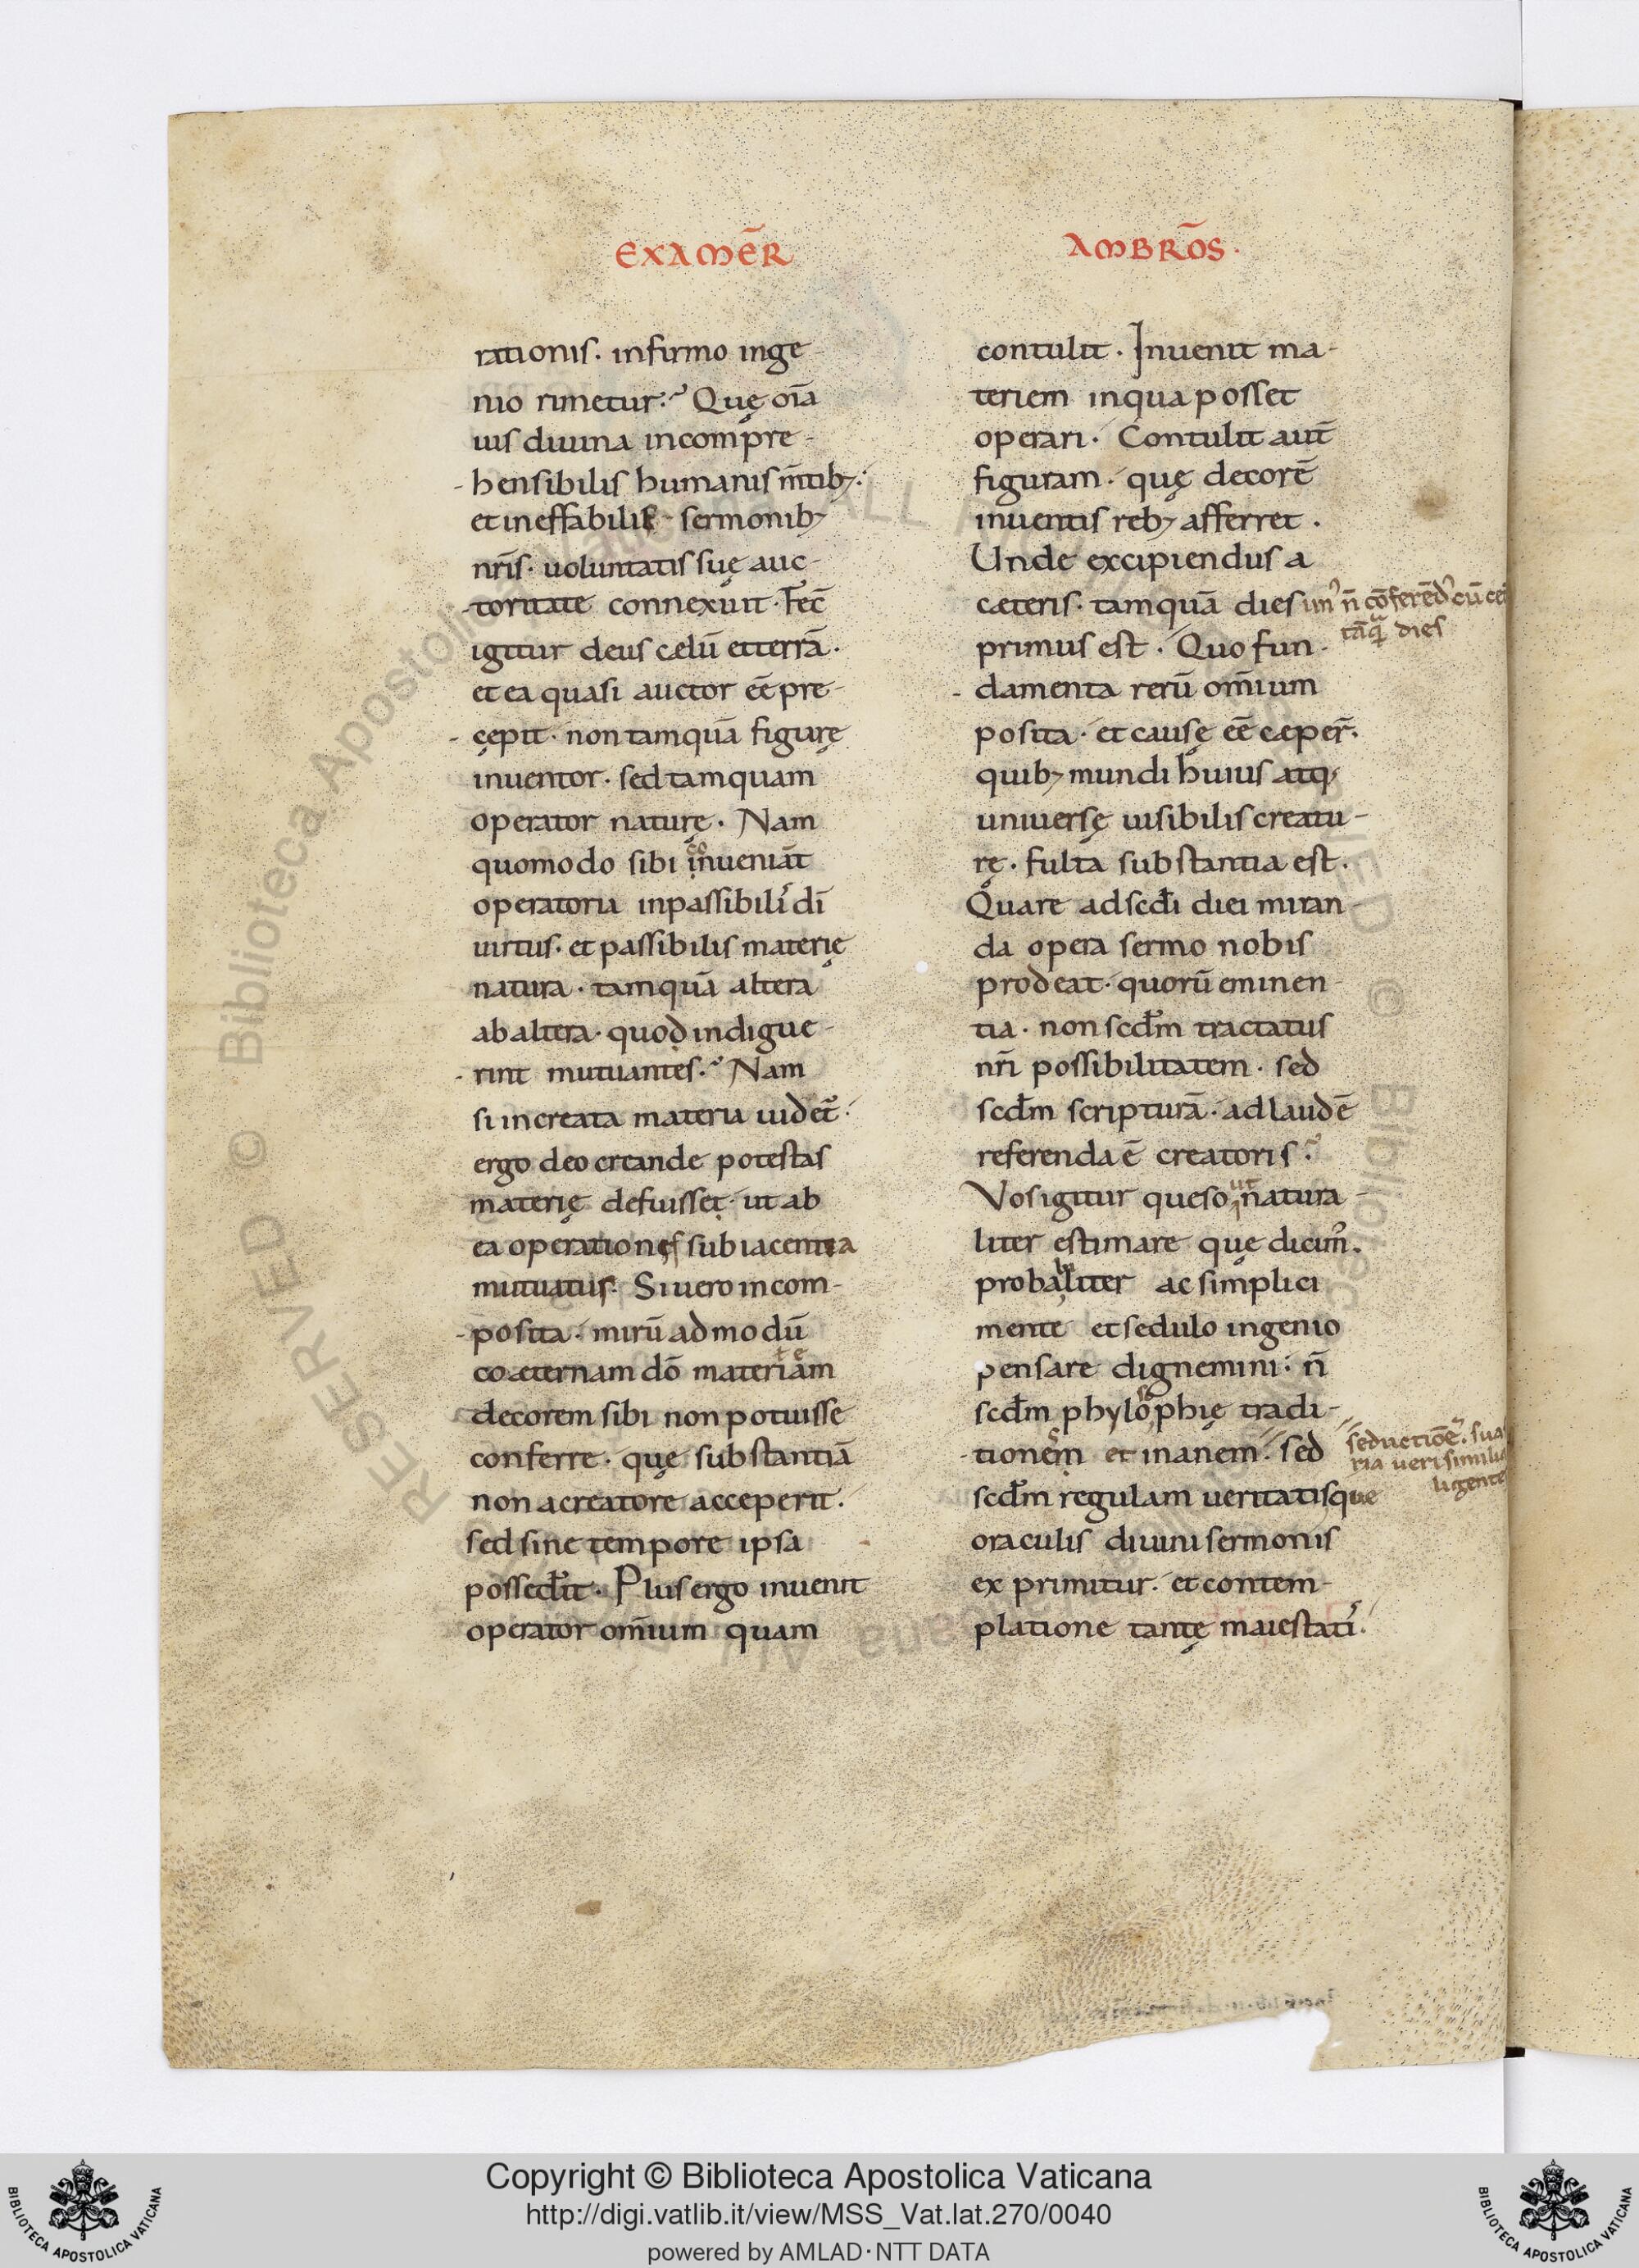 EXAMēR
rationis. infirmo inge-
nio rimetur. Quę oīa
uis diuina incompre-
hensibilis humanis m̄tib;.
et ineffabilis sermonib;
nr̄is. uoluntatis suę auc-
toritate connexuit. Fec̄
igitur deus cęlū et terrā.
et ea quasi auctor eē pre-
cępit. non tamquā figurę
inuentor. sed tamquam
operator naturę. Nam
quomodo sibi inueniāt
operatoria inpassibili' dī
uirtus. et passibilis materię
natura. tamquā altera
ab altera. quod indigue-
rint mutuantes. Nam
si increata materia uidet̄.
ergo deo creande potestas
materię defuisset. ut ab
ea operationes subiacentia
mutuatus. Si uero incom-
posita. mirū admodū
coæternam dō materiam
decorem sibi non potuisse
conferre. quę substantiā
non a creatore acceperit.
sed sine tempore ipsa
possed̄it. Plus ergo inuenit
operator om̄ium quam
AMBRōS.
contulit. Inuenit ma-
teriem in qua posset
operari. Contulit aut̄
figuram. quę decorē
inuentis reb; afferret.
Unde excipiendus a
cæteris. tamquā dies
primus est. Quo fun-
damenta rerū om̄ium
posita. et causę eē cæper̄.
quib; mundi huius atq;
uniuersę uisibilis creatu-
rę. fulta substantia est.
Quare ad scd̄i diei miran-
da opera sermo nobis
prodeat. quorū eminen-
tia. non scd̄m tractatus
nr̄i possibilitatem. sed
scd̄m scripturā. ad laudē
referenda ē creatoris.
Vos igitur queso ut natura-
liter estimare quę dicim̄.
probabiliter ac simplici
mente et sedulo ingenio
pensare dignemini. n̄
scd̄m phylosophię tradi-
tionem et inanem. sed
scd̄m regulam ueritatisque
oraculis diuini sermonis
exprimitur. et contem-
platione tantę maiestati'.
n̄ cōferēd' cū
dies
seductiōē. sua
ria ueri simili
ligente
Copyright © Biblioteca Apostolica Vaticana
http://digi.vatlib.it/view/MSS_Vat.lat.270/0040
powered by AMLAD·NTT DATA
BIBLIOTECA APOSTOLICA VATICANA
BIBLIOTECA APOSTOLICA VATICANA